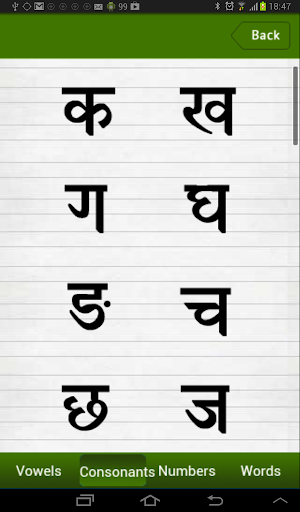 99 18:47
Back
क ख
ग घ
ङ च
छ ज
Vowels Consonants Numbers Words